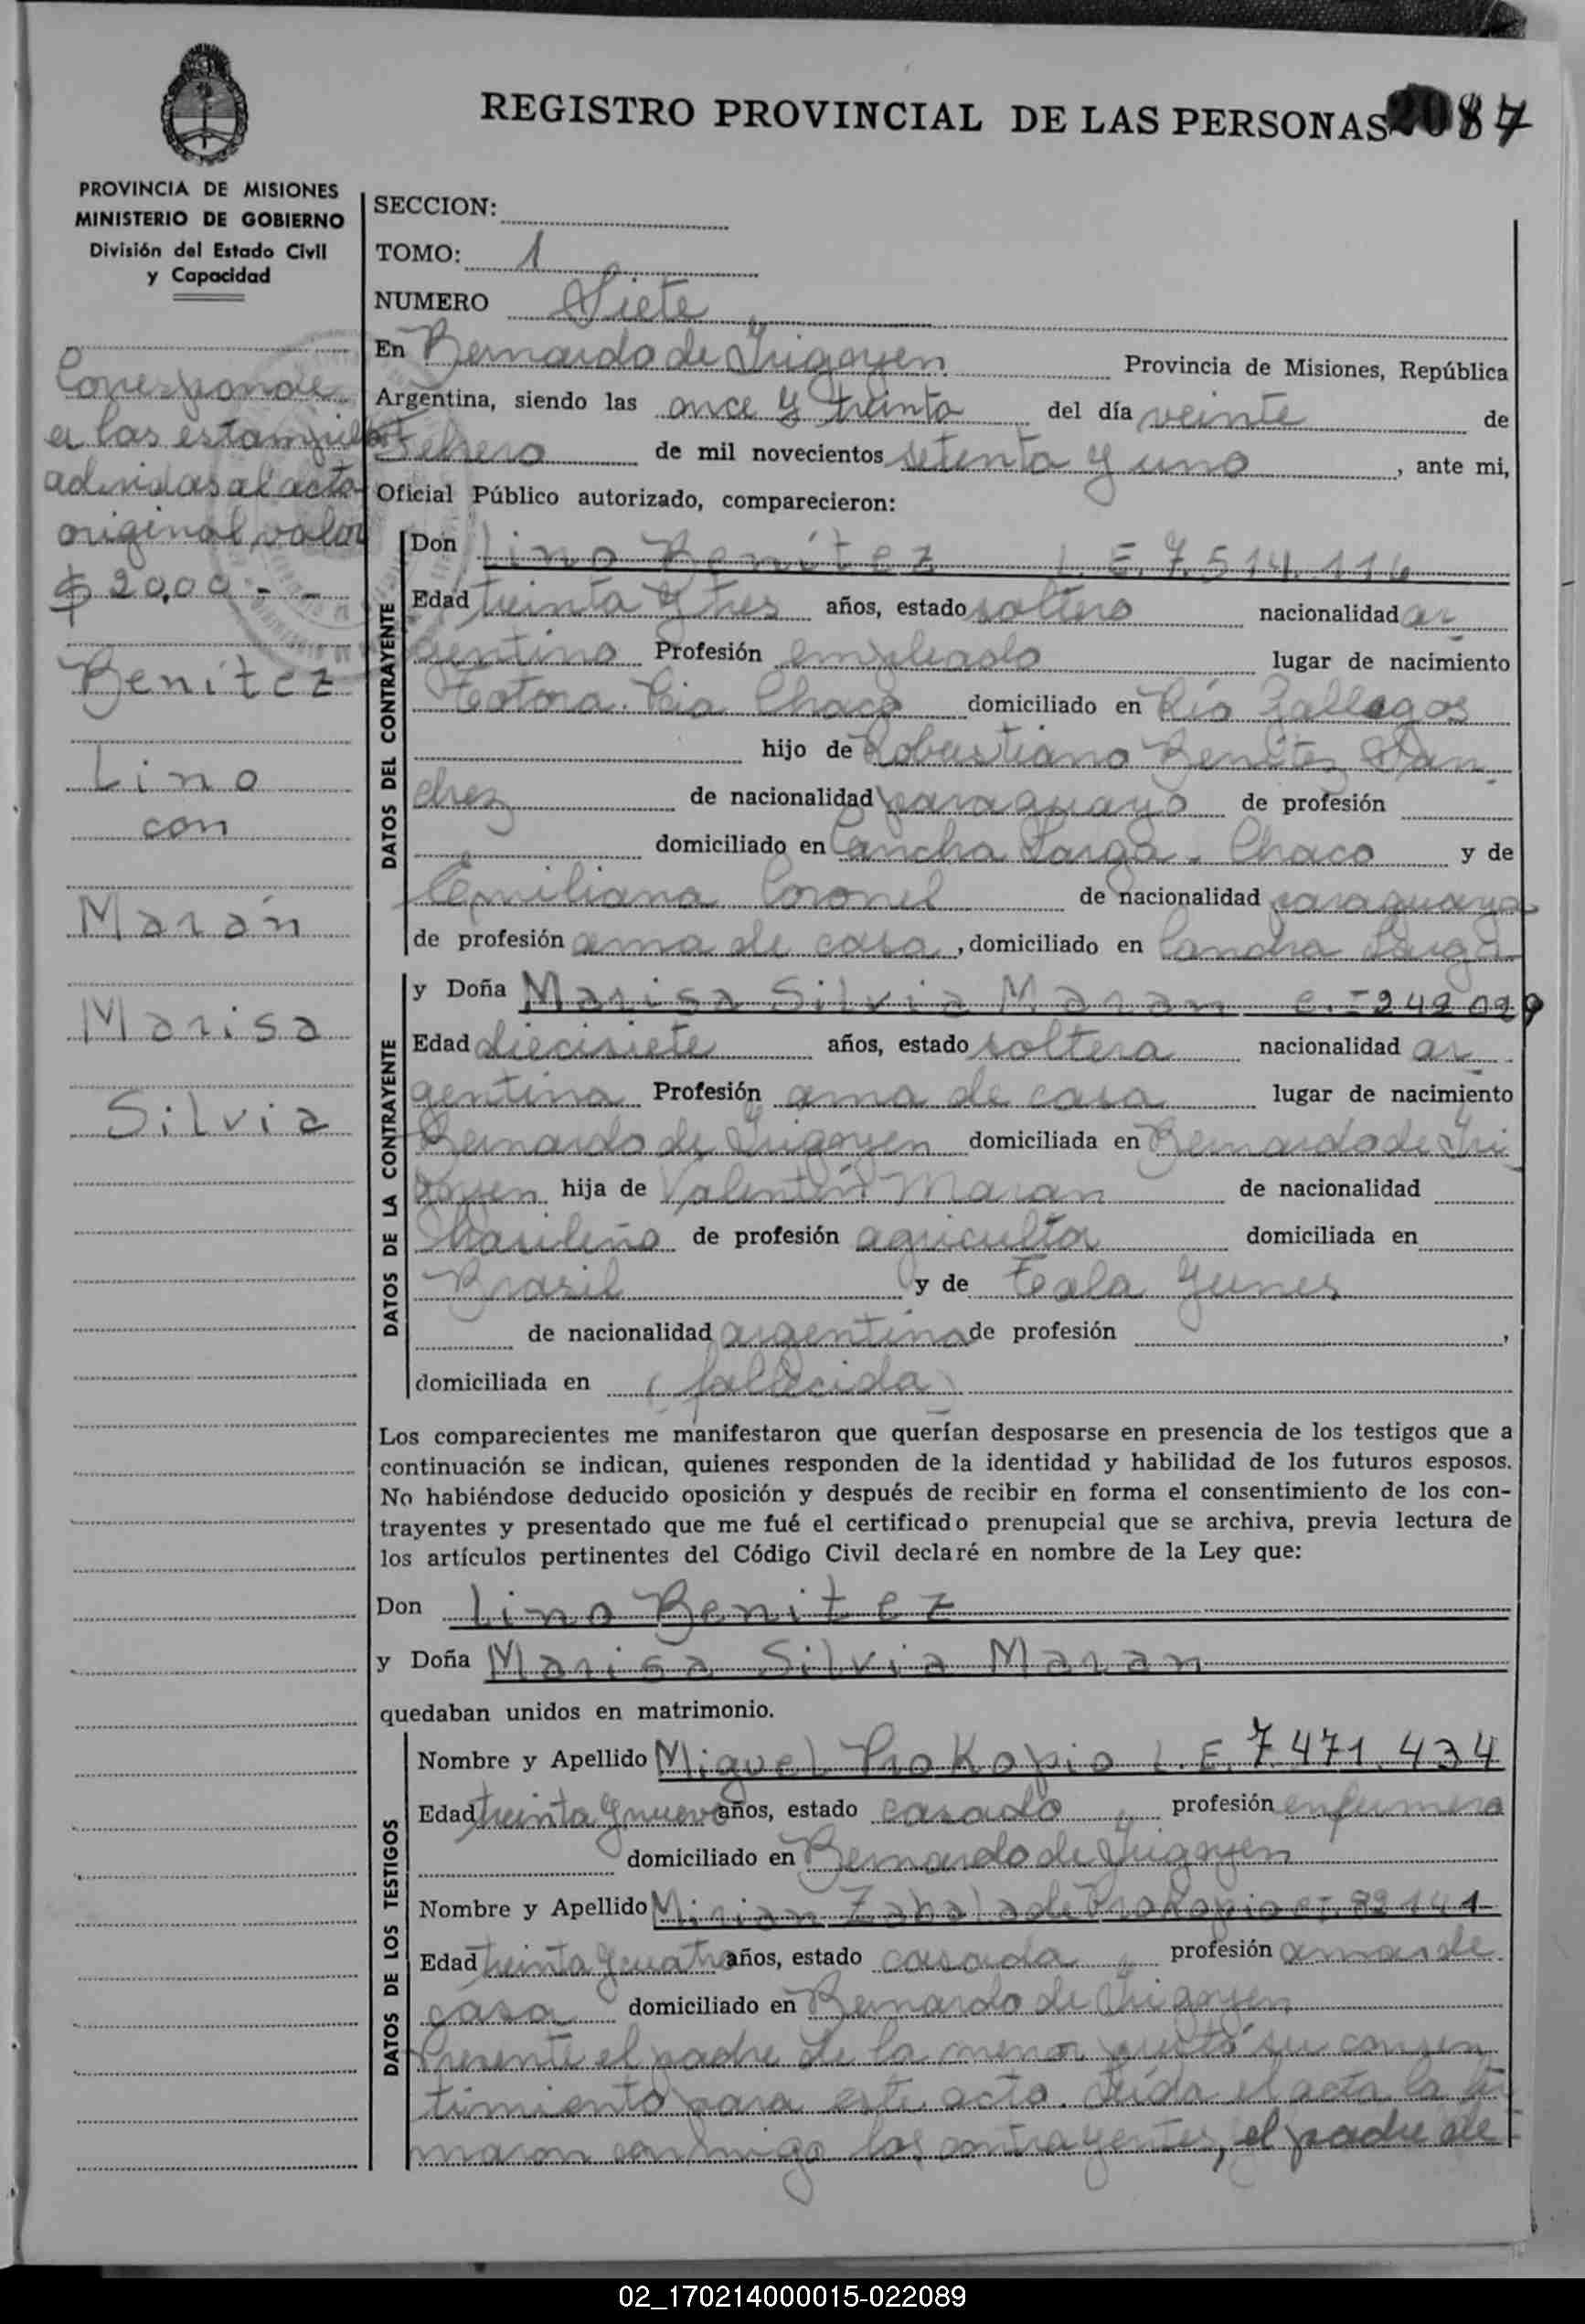 REGISTRO PROVINCIAL DE LAS PERSONAS 2087
PROVINCIA DE MISIONES
MINISTERIO DE GOBIERNO
División del Estado Civil
y Capacidad
Corresponde
a las estampillas
adheridas al acto
original valor
$ 20,00 - -
Benítez
Lino
con
Marán
Marisa
Silvia
SECCION:
TOMO: 1
NUMERO Siete
En Bernardo de Irigoyen Provincia de Misiones, República
Argentina, siendo las once y treinta del día veinte de
Febrero de mil novecientos setenta y uno, ante mi,
Oficial Público autorizado, comparecieron:
DATOS DEL CONTRAYENTE
Don Lino Benítez L.E. 7.514.116
Edad treinta y tres años, estado soltero nacionalidad ar
gentino Profesión empleado lugar de nacimiento
Totora. Pcia Chaco domiciliado en Río Gallegos
hijo de Robustiano Benítez San
chez de nacionalidad paraguayo de profesión
domiciliado en Cancha Larga - Chaco y de
Emiliana Coronel de nacionalidad paraguaya
de profesión ama de casa, domiciliado en Cancha Larga
DATOS DE LA CONTRAYENTE
y Doña Marisa Silvia Maran C.I 242029
Edad diecisiete años, estado soltera nacionalidad ar
gentina Profesión ama de casa lugar de nacimiento
Bernardo de Irigoyen domiciliada en Bernardo de Iri
goyen hija de Valentín Maran de nacionalidad
brasileño de profesión agricultor domiciliada en
Brasil y de Tala Yunes
de nacionalidad argentina de profesión ,
domiciliada en (fallecida)
Los comparecientes me manifestaron que querían desposarse en presencia de los testigos que a
continuación se indican, quienes responden de la identidad y habilidad de los futuros esposos.
No habiéndose deducido oposición y después de recibir en forma el consentimiento de los con-
trayentes y presentado que me fué el certificado prenupcial que se archiva, previa lectura de
los artículos pertinentes del Código Civil declaré en nombre de la Ley que:
Don Lino Benitez
y Doña Marisa Silvia Maran
quedaban unidos en matrimonio.
DATOS DE LOS TESTIGOS
Nombre y Apellido Miguel Prokopio L.E. 7.471.434
Edad treinta y nueve años, estado casado, profesión enfermero
domiciliado en Bernardo de Irigoyen
Nombre y Apellido Mirian Zabala de Prokopio CI. 89141
Edad treinta y cuatro años, estado casada, profesión ama de
casa domiciliado en Bernardo de Irigoyen
Presente el padre de la menor prestó su consen
timiento para este acto. Leída el acta la fir
maron conmigo los contrayentes, el padre de
02_170214000015-022089